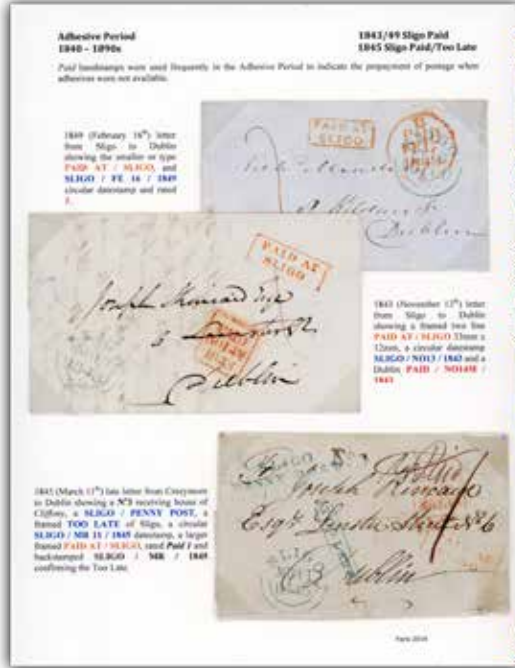 Adhesive Period
1840 – 1890s
1843/49 Sligo Paid
1845 Sligo Paid/Too Late
Paid handstamps were used frequently in the Adhesive Period to indicate the prepayment of postage when
adhesives were not available.
1849 (February 16th) letter
from Sligo to Dublin
showing the smaller or type
PAID AT / SLIGO, and
SLIGO / FE 16 / 1849
circular datestamp and rated
1.
PAID AT
SLIGO
Dublin
PAID AT
SLIGO
Joseph Kincaid Esq
6
Dublin
1843 (November 13th) letter
from Sligo to Dublin
showing a framed two line
PAID AT / SLIGO 33mm x
12mm, a circular datestamp
SLIGO / NO13 / 1843 and a
Dublin PAID / NO14M /
1843
1845 (March 11th) late letter from Creeymore
to Dublin showing a Nº3 receiving house of
Cliffony, a SLIGO / PENNY POST, a
framed TOO LATE of Sligo, a circular
SLIGO / MR 11 / 1845 datestamp, a larger
framed PAID AT / SLIGO, rated Paid 1 and
backstamped SLIGO / MR / 1845
confirming the Too Late.
Joseph Kincaid
Esqr Leinster Street No 6
Dublin
Paris 2014